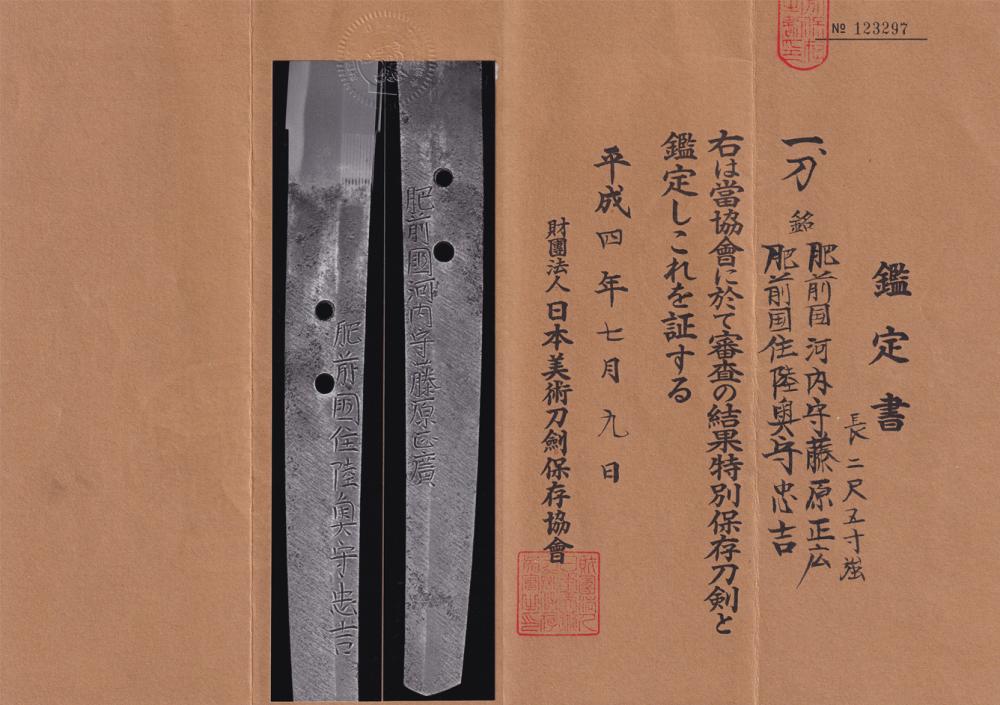 № 123297
鑑定書
一、刀 銘 肥前国河内守藤原正広
肥前国住陸奥守忠吉
長二尺五寸強
右は當協會に於て審査の結果特別保存刀剣と
鑑定しこれを証する
平成四年七月九日
財團法人日本美術刀劍保存協會
肥前國河内守藤原正廣
肥前國住陸奥守忠吉